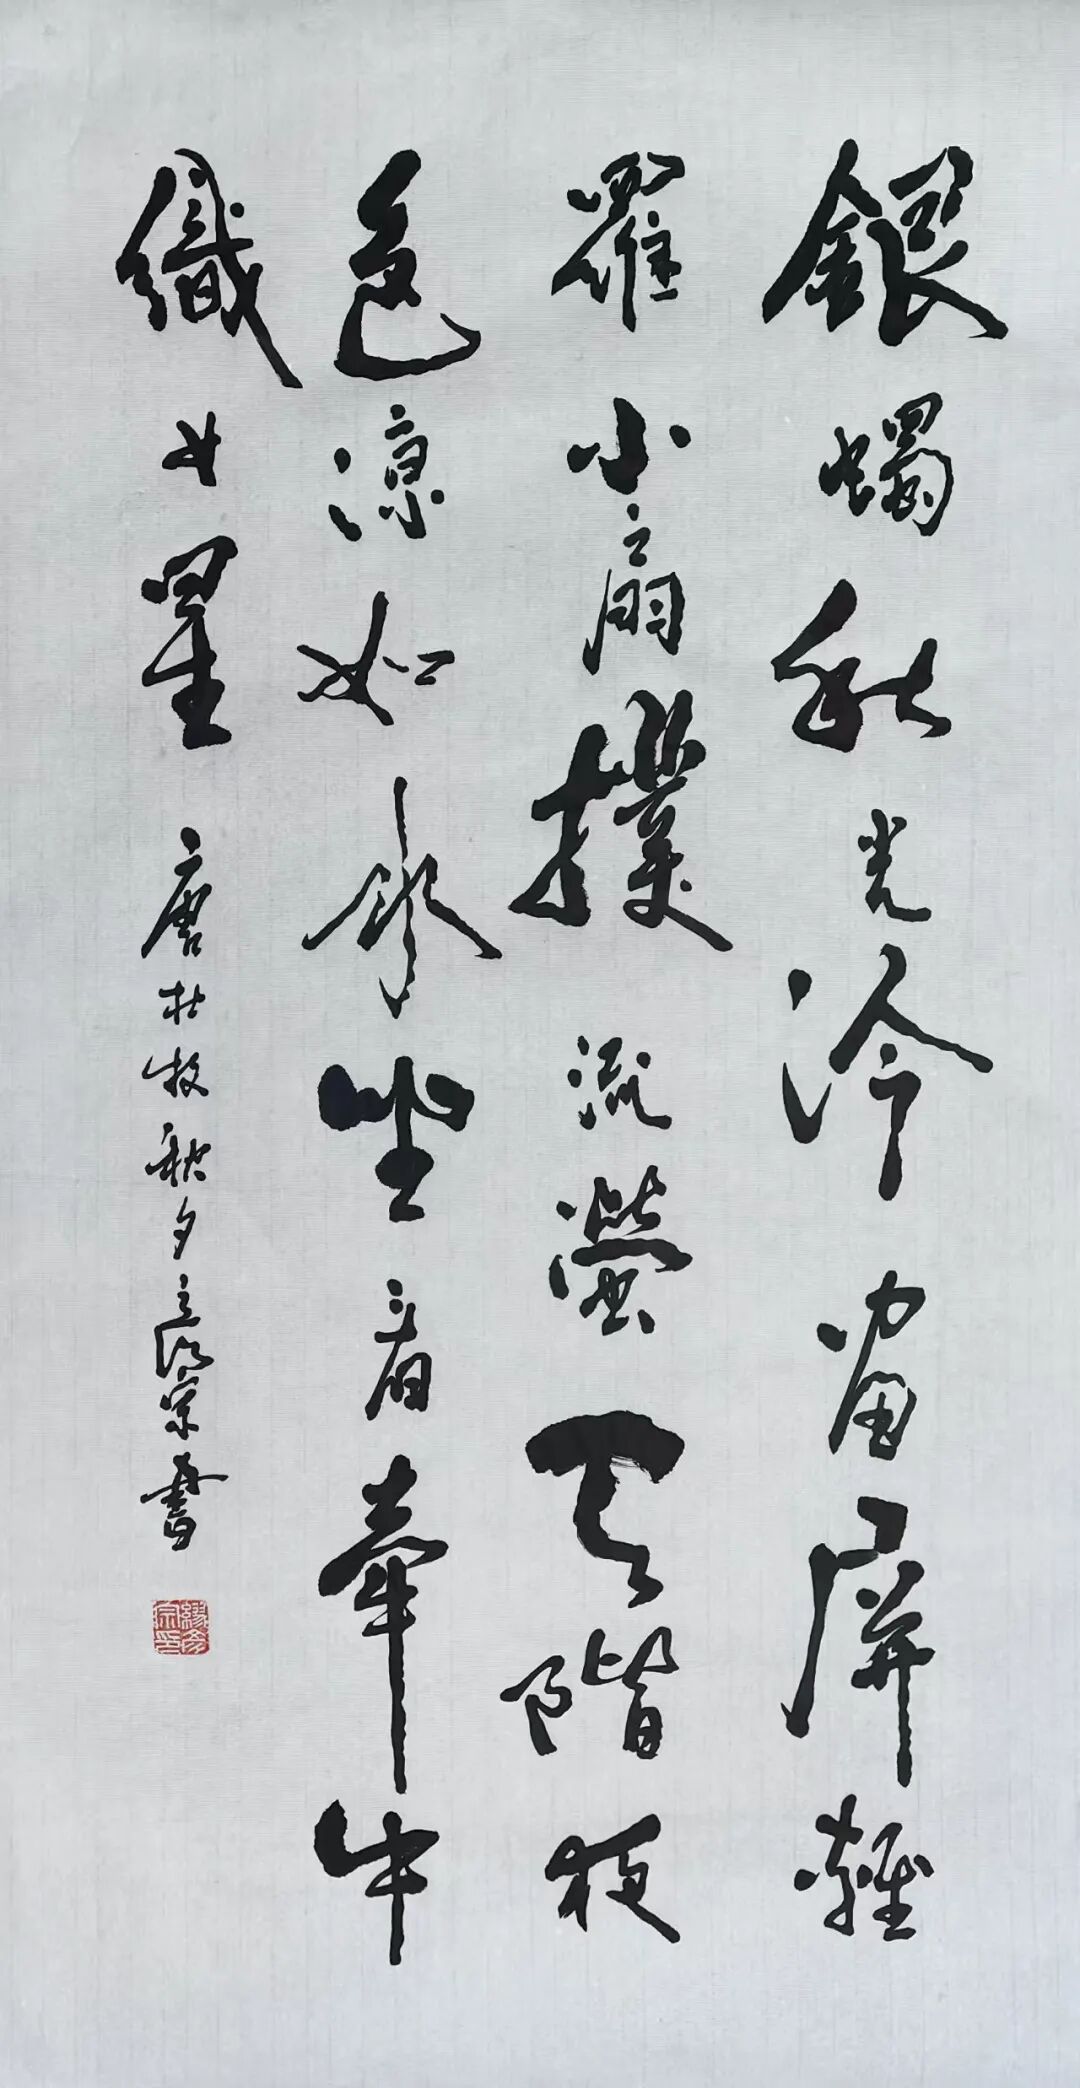 銀燭秋光冷畫屏輕
羅小扇撲流螢天階夜
色凉如水坐看牽牛
織女星 唐杜牧秋夕 彦宗書
繆彦宗印